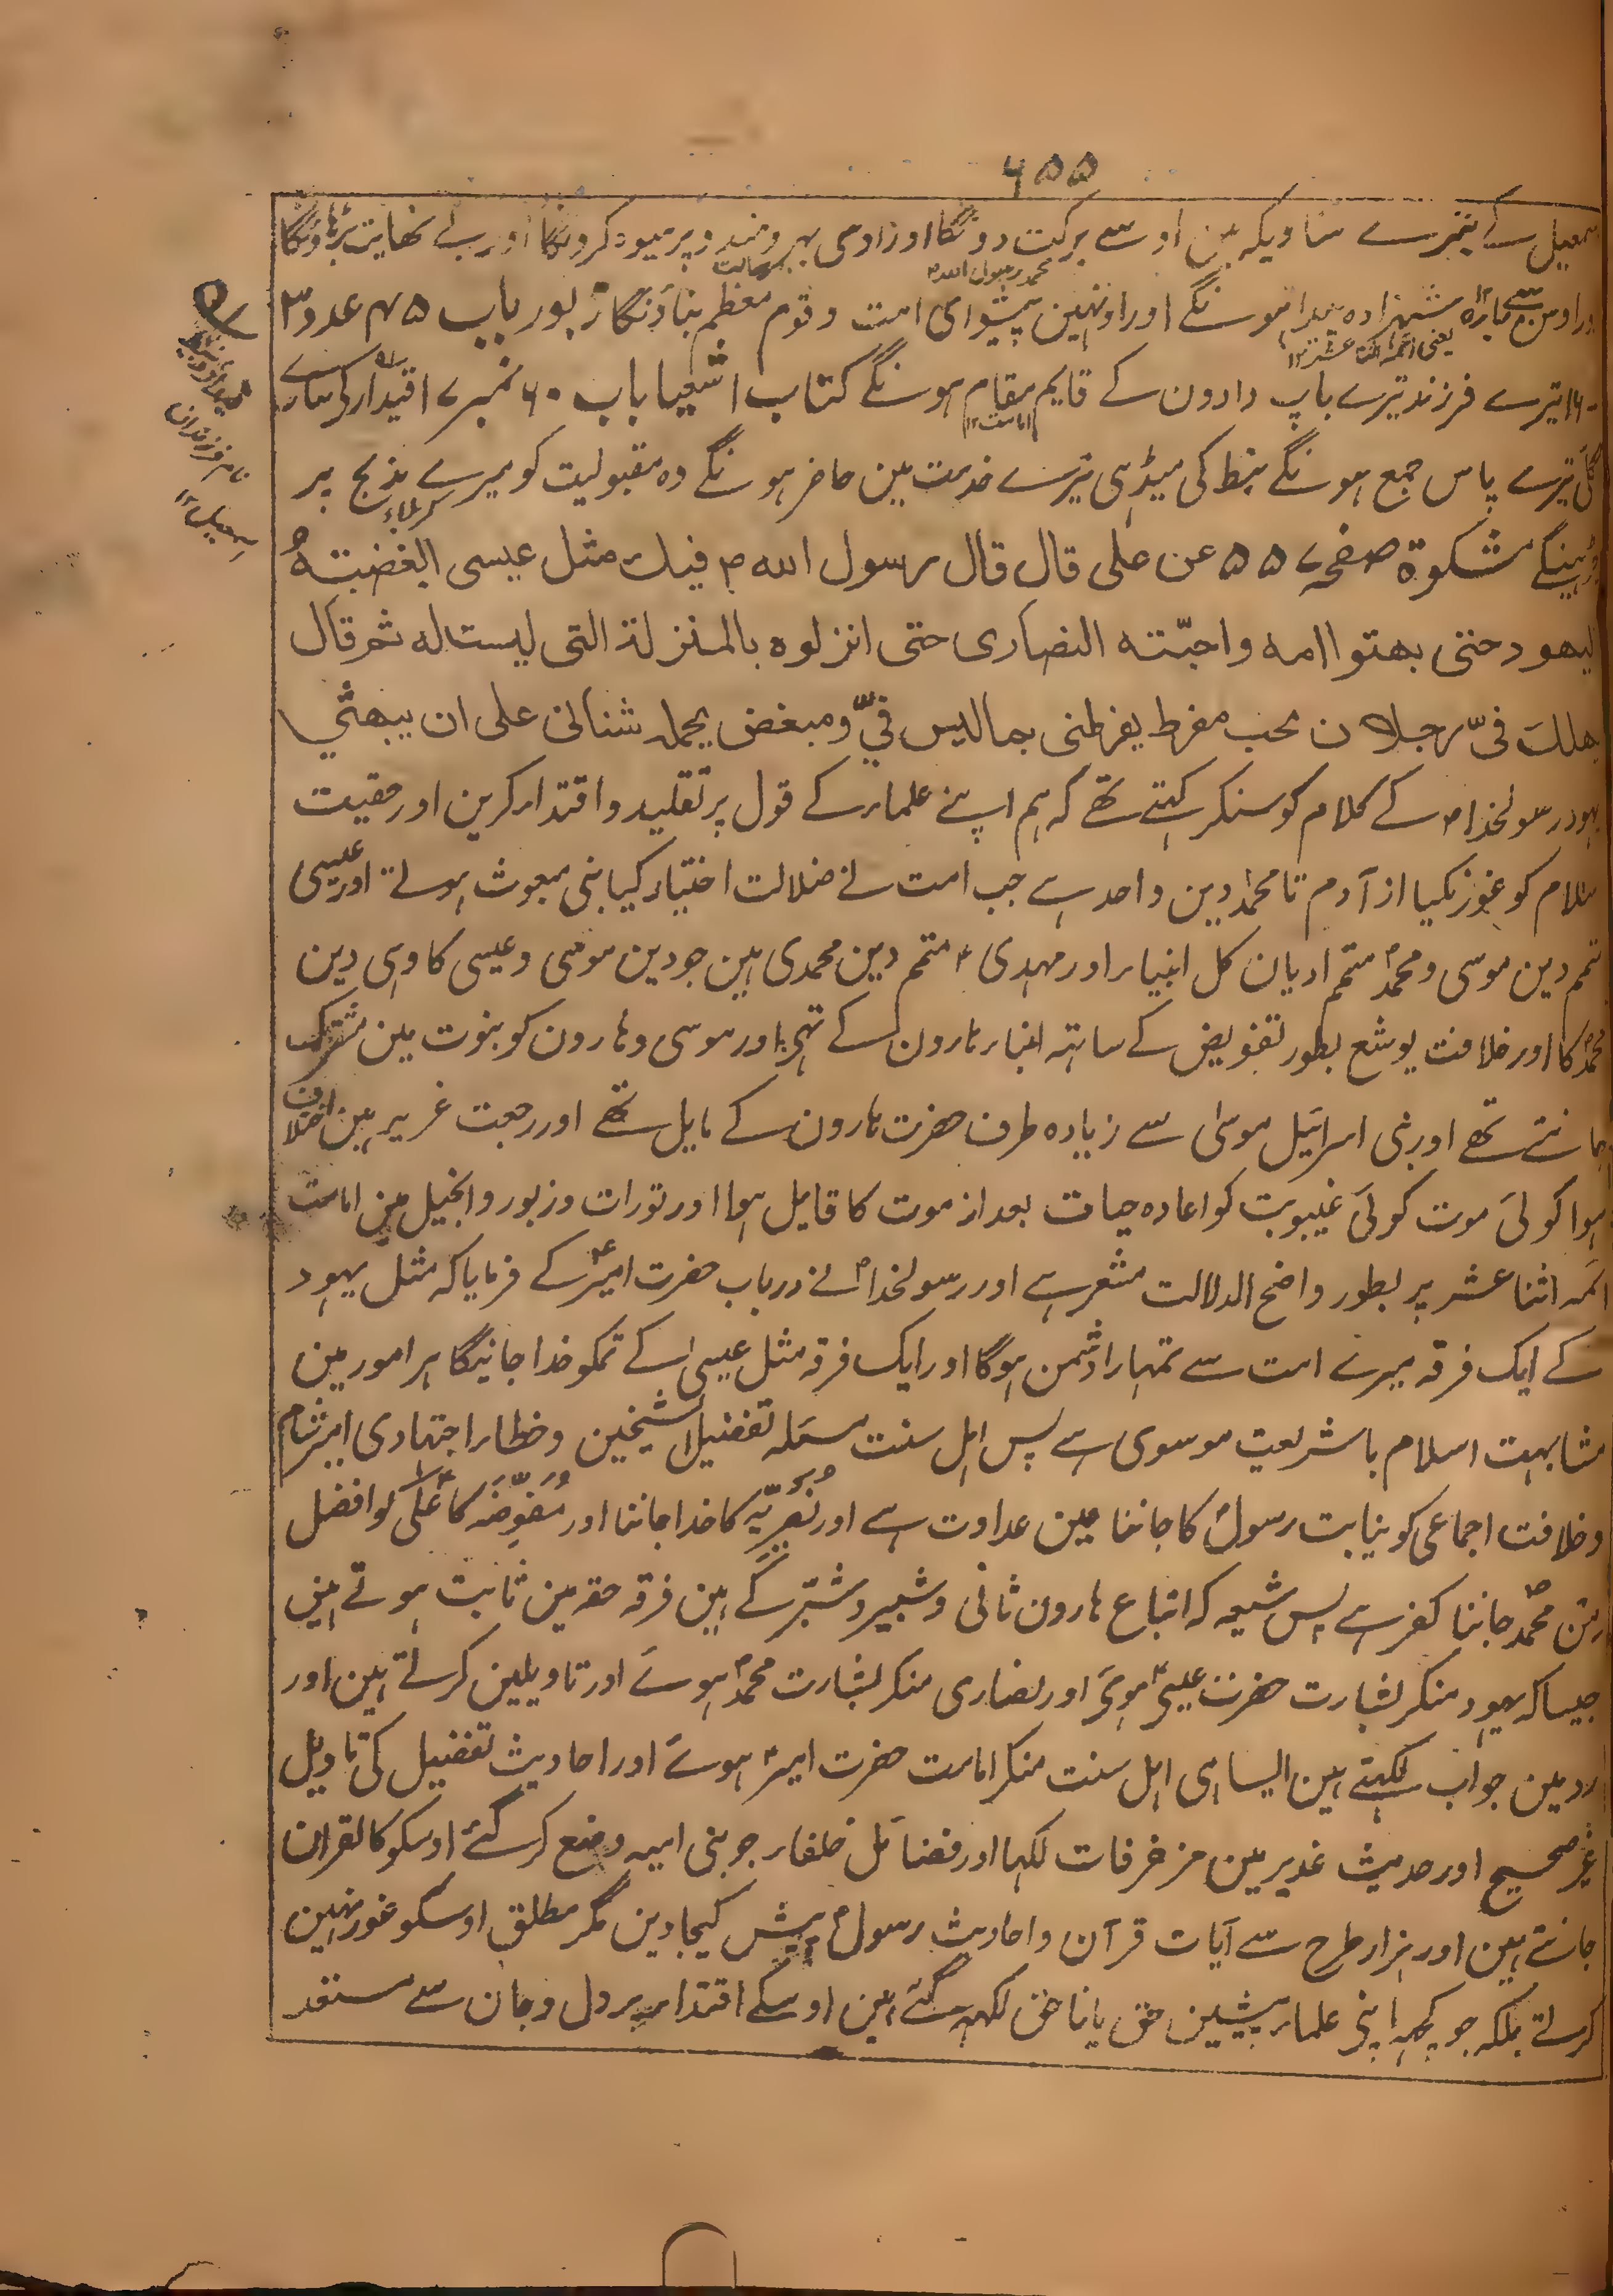 ۶۵۵
سمعیل کے تیرے سنا دیکہ مین اوسے برکت دونگا اور اوسی بہرومند و پرمیوہ کرونگا اور بے نہایت بڑہاؤنگا
محمد رسول اللہ
رسالت
اور اوس سے بارہ شہزادہ پیدا ہونگے اور اونہین پیشوای امت و قوم معظم بناؤنگا زبور باب ۴۵ عدد ۳
یعنی ائمہ اثنا عشر ۱۲
۱۶ تیرے فرزند تیرے باپ دادون کے قایم مقام ہونگے کتاب اشعیا باب ۶۰ نمبر ۷ اقیدار کی سارے
امامت ۱۲
گلّی تیرے پاس جمع ہونگے نبط کی میڈہی تیرے خدمت مین حاضر ہونگے وہ مقبولیت کو میرے مذبح پر
کربلا
نام فرزندان
سمعیل ۱۲
مشکوة صفحہ ۵۵۷ عن علی قال قال رسول الله ص فیك مثل عیسی ابغضته
الیهود حتی بهتوا امه واحبّته النصاری حتی انزلوه بالمنزلة التی لیست له ثم قال
یهلك فیّ رجلان محب مفرط یفرطنی بما لیس فیّ ومبغض یحمله شنانی علی ان یبهتنی
یہود رسولخدا ص کے کلام کو سنکر کہتے تھے کہ ہم اپنے علماء کے قول پر تقلید و اقتدار کرین اور حقیت
اسلام کو غور نکیا از آدم تا محمد دین واحد ہے جب امت نے ضلالت اختیار کیا نبی مبعوث ہوئے اور عیسی
متمم دین موسی و محمد متمم ادیان کل انبیاء اور مہدی ع متمم دین محمدی ہین جو دین موسی و عیسی کا وہی دین
محمد کا اور خلافت یوشع بطور تفویض کے ساتہہ ابناء ہارون کے تہی اور موسی و ہارون کو نبوت مین مشترک
جانتے تھے اور بنی اسرائیل موسی سے زیادہ طرف حضرت ہارون کے مایل تھے اور رجعت عزیر مین اختلاف
ہوا کوئی موت کوئی غیبوبت کو اعادہ حیات بعد از موت کا قایل ہوا اور تورات و زبور و انجیل مین امامت
ائمہ اثنا عشر پر بطور واضح الدلالت مشعر ہے اور رسولخدا ص نے درباب حضرت امیر ع کے فرمایا کہ مثل یہود
کے ایک فرقہ میرے امت سے تمہارا دشمن ہوگا اور ایک فرقہ مثل عیسی کے تمکو خدا جانیگا ہر امور مین
مشابہت اسلام با شریعت موسوی ہے پس اہل سنت مسئلہ تفضیل شیخین و خطاء اجتہادی امیر شام
و خلافت اجماعی کو نیابت رسول کا جاننا عین عداوت ہے اور نُصَیریّہ کا خدا جاننا اور مُفَوِّضَہ کا علی کو افضل
من محمد ص جاننا کفر ہے پس شیعہ کہ اتباع ہارون ثانی و شبیر و شبّر کے ہین فرقہ حقہ مین ثابت ہوتے ہین
جیسا کہ یہود منکر بشارت حضرت عیسی ہوئی اور نصاری منکر بشارت محمد ہوئے اور تاویلین کرتے ہین اور
رد مین جواب لکہتے ہین ایسا ہی اہل سنت منکر امامت حضرت امیر ع ہوئے اور احادیث تفضیل کی تاویل
غیر صحیح اور حدیث غدیر مین مزخرفات لکہا اور فضائل خلفاء جو بنی امیہ وضع کر گئے اوسکو کالقران
جانتے ہین اور ہزار طرح سے آیات قرآن و احادیث رسول پیش کیجاوین مگر مطلق اوسکو غور نہین
کرتے بلکہ جو کچہہ اپنی علماء پیشین حق یا ناحق لکہہ گئے ہین اوسکے اقتداء پر دل و جان سے مستعد